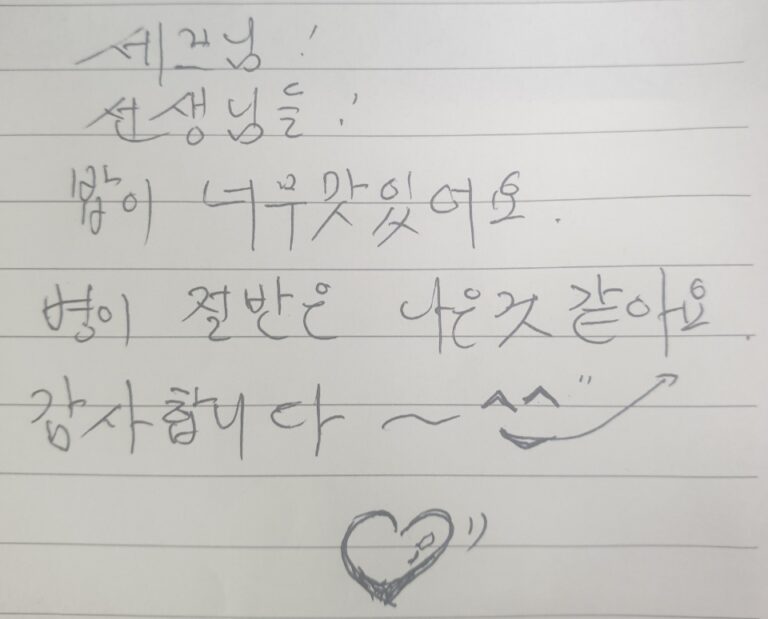 세프님!
선생님들!
밥이 너무맛있어요.
병이 절반은 나은것 같아요.
감사합니다 ~ ^^"